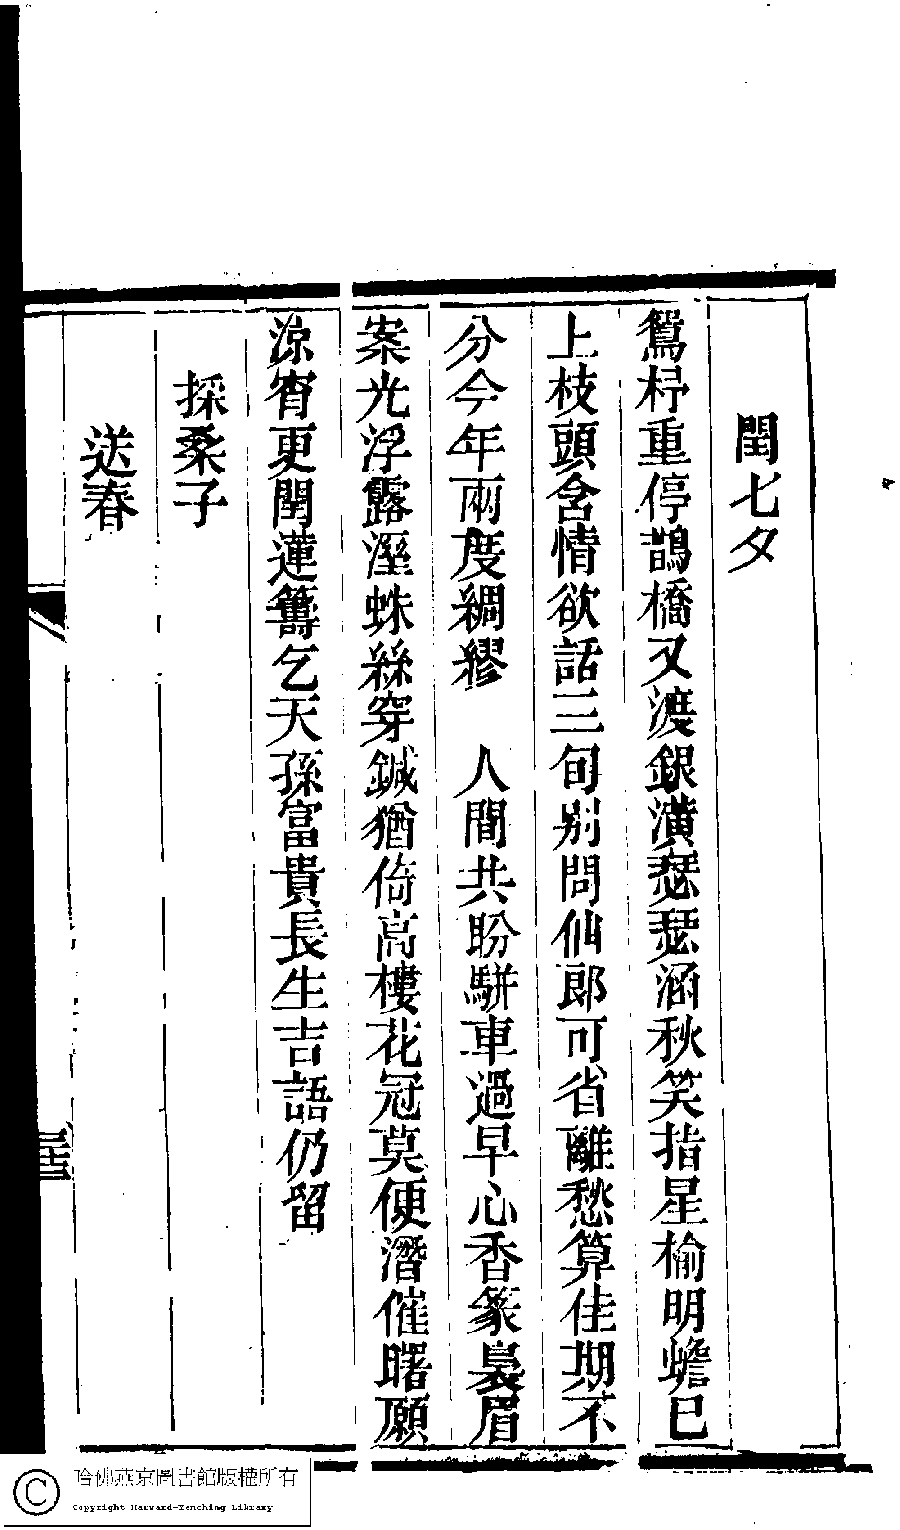 閏七夕
鴛杼重停鵲橋又渡銀潢瑟瑟涵秋笑指星榆明蟾已
上枝頭含情欲話三旬别問仙郎可省離愁算佳期不
分今年兩度綢繆　人間共盼駢車過早心香篆裊眉
案光浮露溼蛛絲穿鍼猶倚高樓花冠莫便潛催曙願
涼宵更閏蓮籌乞天孫富貴長生吉語仍留
採桑子
送春
哈佛燕京圖書館版權所有
Copyright Harvard-Yenching Library